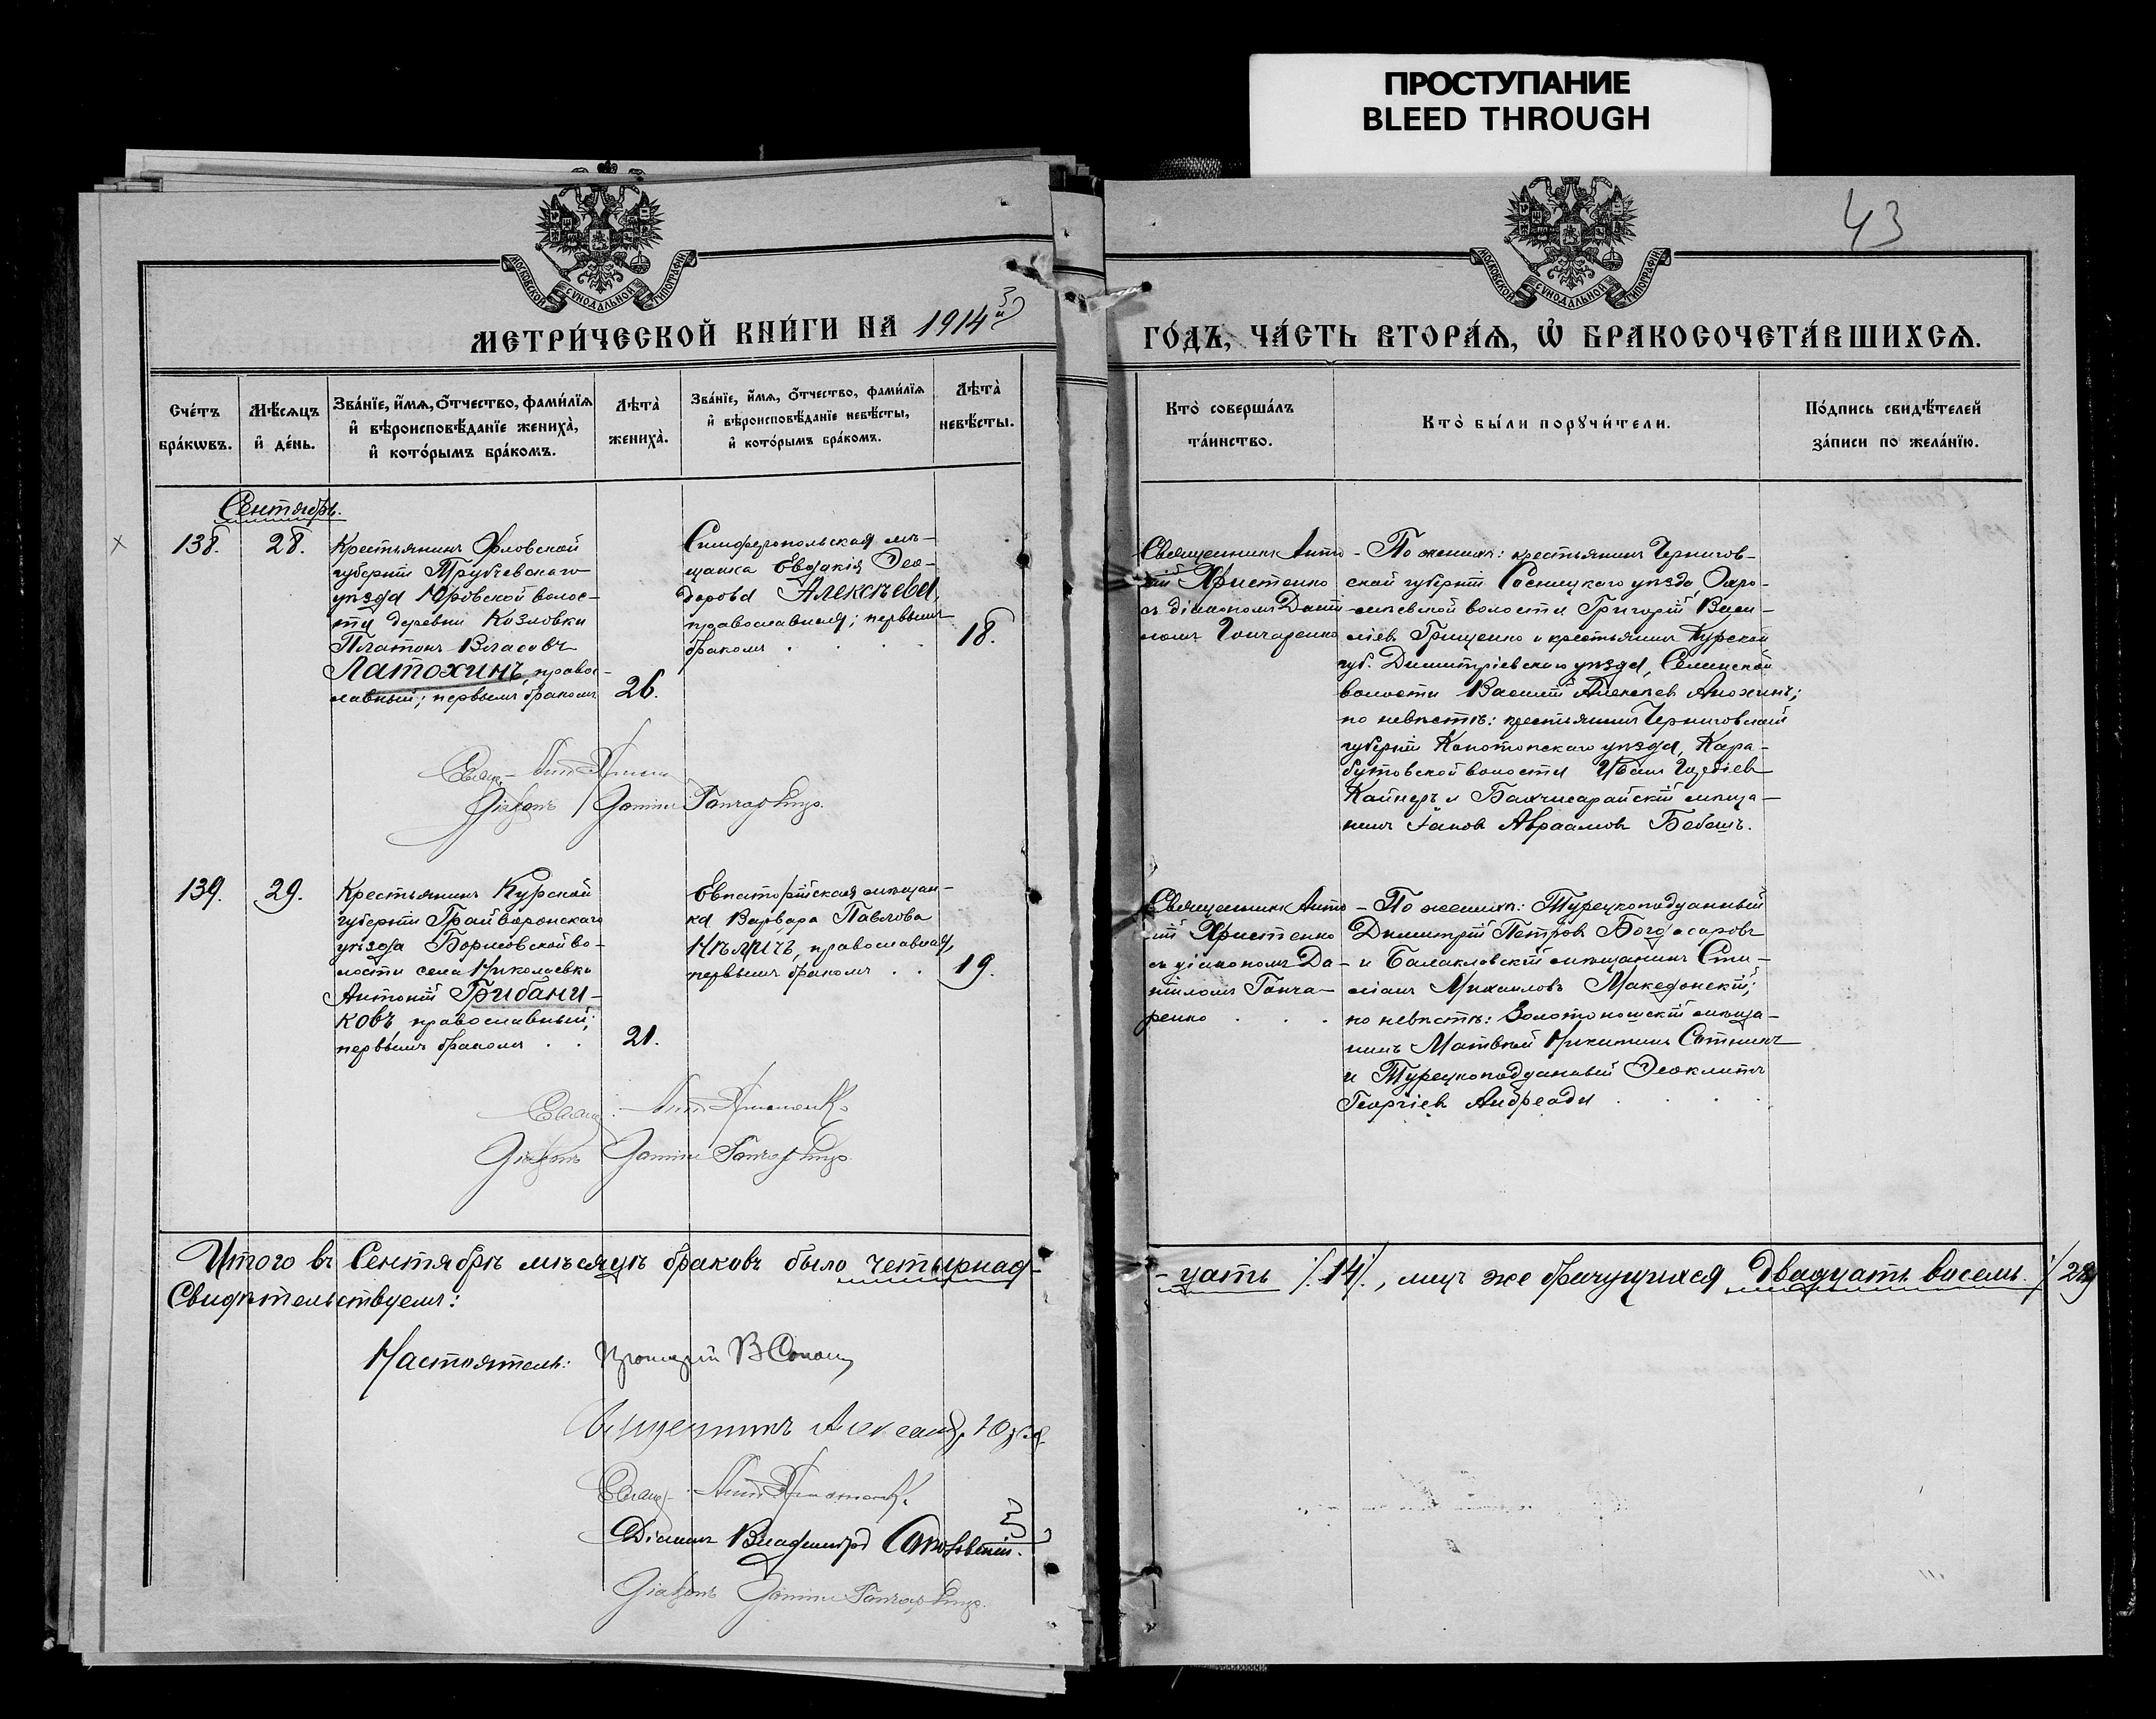 ПРОСТУПАНИЕ
BLEED THROUGH
43
МОСКОВСКОЙ СѴНОДАЛЬНОЙ ТИПОГРАФІИ
МОСКОВСКОЙ СѴНОДАЛЬНОЙ ТИПОГРАФІИ
МЕТРИ́ЧЕСКОЙ КНИ́ГИ НА 1914й
ГО́ДЪ, ЧА́СТЬ ВТОРА́Ѧ, Ѽ БРАКОСОЧЕТА́ВШИХСѦ.
Сче́тъ бра́кѡвъ.
Мѣ́сяцъ и҆ де́нь.
Зва́нїе, и҆́мѧ, о҆́тчество, фами́лїѧ и҆ вѣроисповѣ́данїе жениха̀, и҆ кото́рымъ бра́комъ.
Лѣта̀ жениха̀.
Зва́нїе, и҆́мѧ, о҆́тчество, фами́лїѧ и҆ вѣроисповѣ́данїе невѣ́сты, и҆ кото́рымъ бра́комъ.
Лѣта̀ невѣ́сты.
Кто̀ соверша́лъ та́инство.
Кто̀ бы́ли порꙋчи́тели.
По́дпись свидѣ́телей за́писи по жела́нїю.
Сентябрь.
138.
28.
Крестьянинъ Орловской
губерніи Трубчевскаго
уѣзда Юровской волос-
ти деревни Козловки
Платонъ Власовъ
Латохинъ, правос-
лавный; первымъ бракомъ
26.
Симферопольская мѣ-
щанка Евдокія Ѳео-
дорова Алексѣева,
православная; первымъ
бракомъ . . . .
18.
Священникъ Анто-
ній Христенко
съ діакономъ Дані-
ломъ Гончаренко
По женихѣ: крестьянинъ Чернигов-
ской губерніи Сосницкаго уѣзда, Охро-
мѣевской волости Григорій Васи-
ліевъ Грищенко и крестьянинъ Курской
губ. Димитріевскаго уѣзда, Селинской
волости Василій Алексѣев Анохинъ;
по невѣстѣ: крестьянинъ Черниговской
губерніи Конотопскаго уѣзда, Кара-
бутовской волости Иванъ
и Бахчисарайскій мѣща-
нинъ Іаковъ Авраамовъ
Діаконъ Даніилъ Гончаренко.
139.
29.
Крестьянинъ Курской
губерніи Грайворонскаго
уѣзда Борисовской во-
лости села Николаевки
Антоній Грибани-
ковъ, православный;
первымъ бракомъ . .
21.
Евпаторійская мѣщан-
ка Варвара Павлова
православная,
первымъ бракомъ . .
19.
Священникъ Анто-
ній Христенко
съ діакономъ Да-
ніиломъ Гонча-
ренко . . .
По женихѣ: Турецкоподданный
Димитрій Петровъ Богдасаровъ
и Балаклавскій мѣщанинъ Сти-
ліанъ Михаиловъ Македонскій;
по невѣстѣ: Золотоношскій мѣща-
нинъ Матвѣй Никитинъ Сытникъ
и Турецкоподданный Ѳеоклитъ
Георгіевъ Андреади . . . .
Діаконъ Даніилъ Гончаренко.
Итого въ Сентябрѣ мѣсяцѣ браковъ было четырнад-
-цать /14/, лицъ же брачущихся двадцать восемь. /28/
Свидѣтельствуемъ:
Настоятель: Протоіерей
Священникъ Александръ
Діаконъ Владиміръ
Діаконъ Даніилъ Гончаренко.